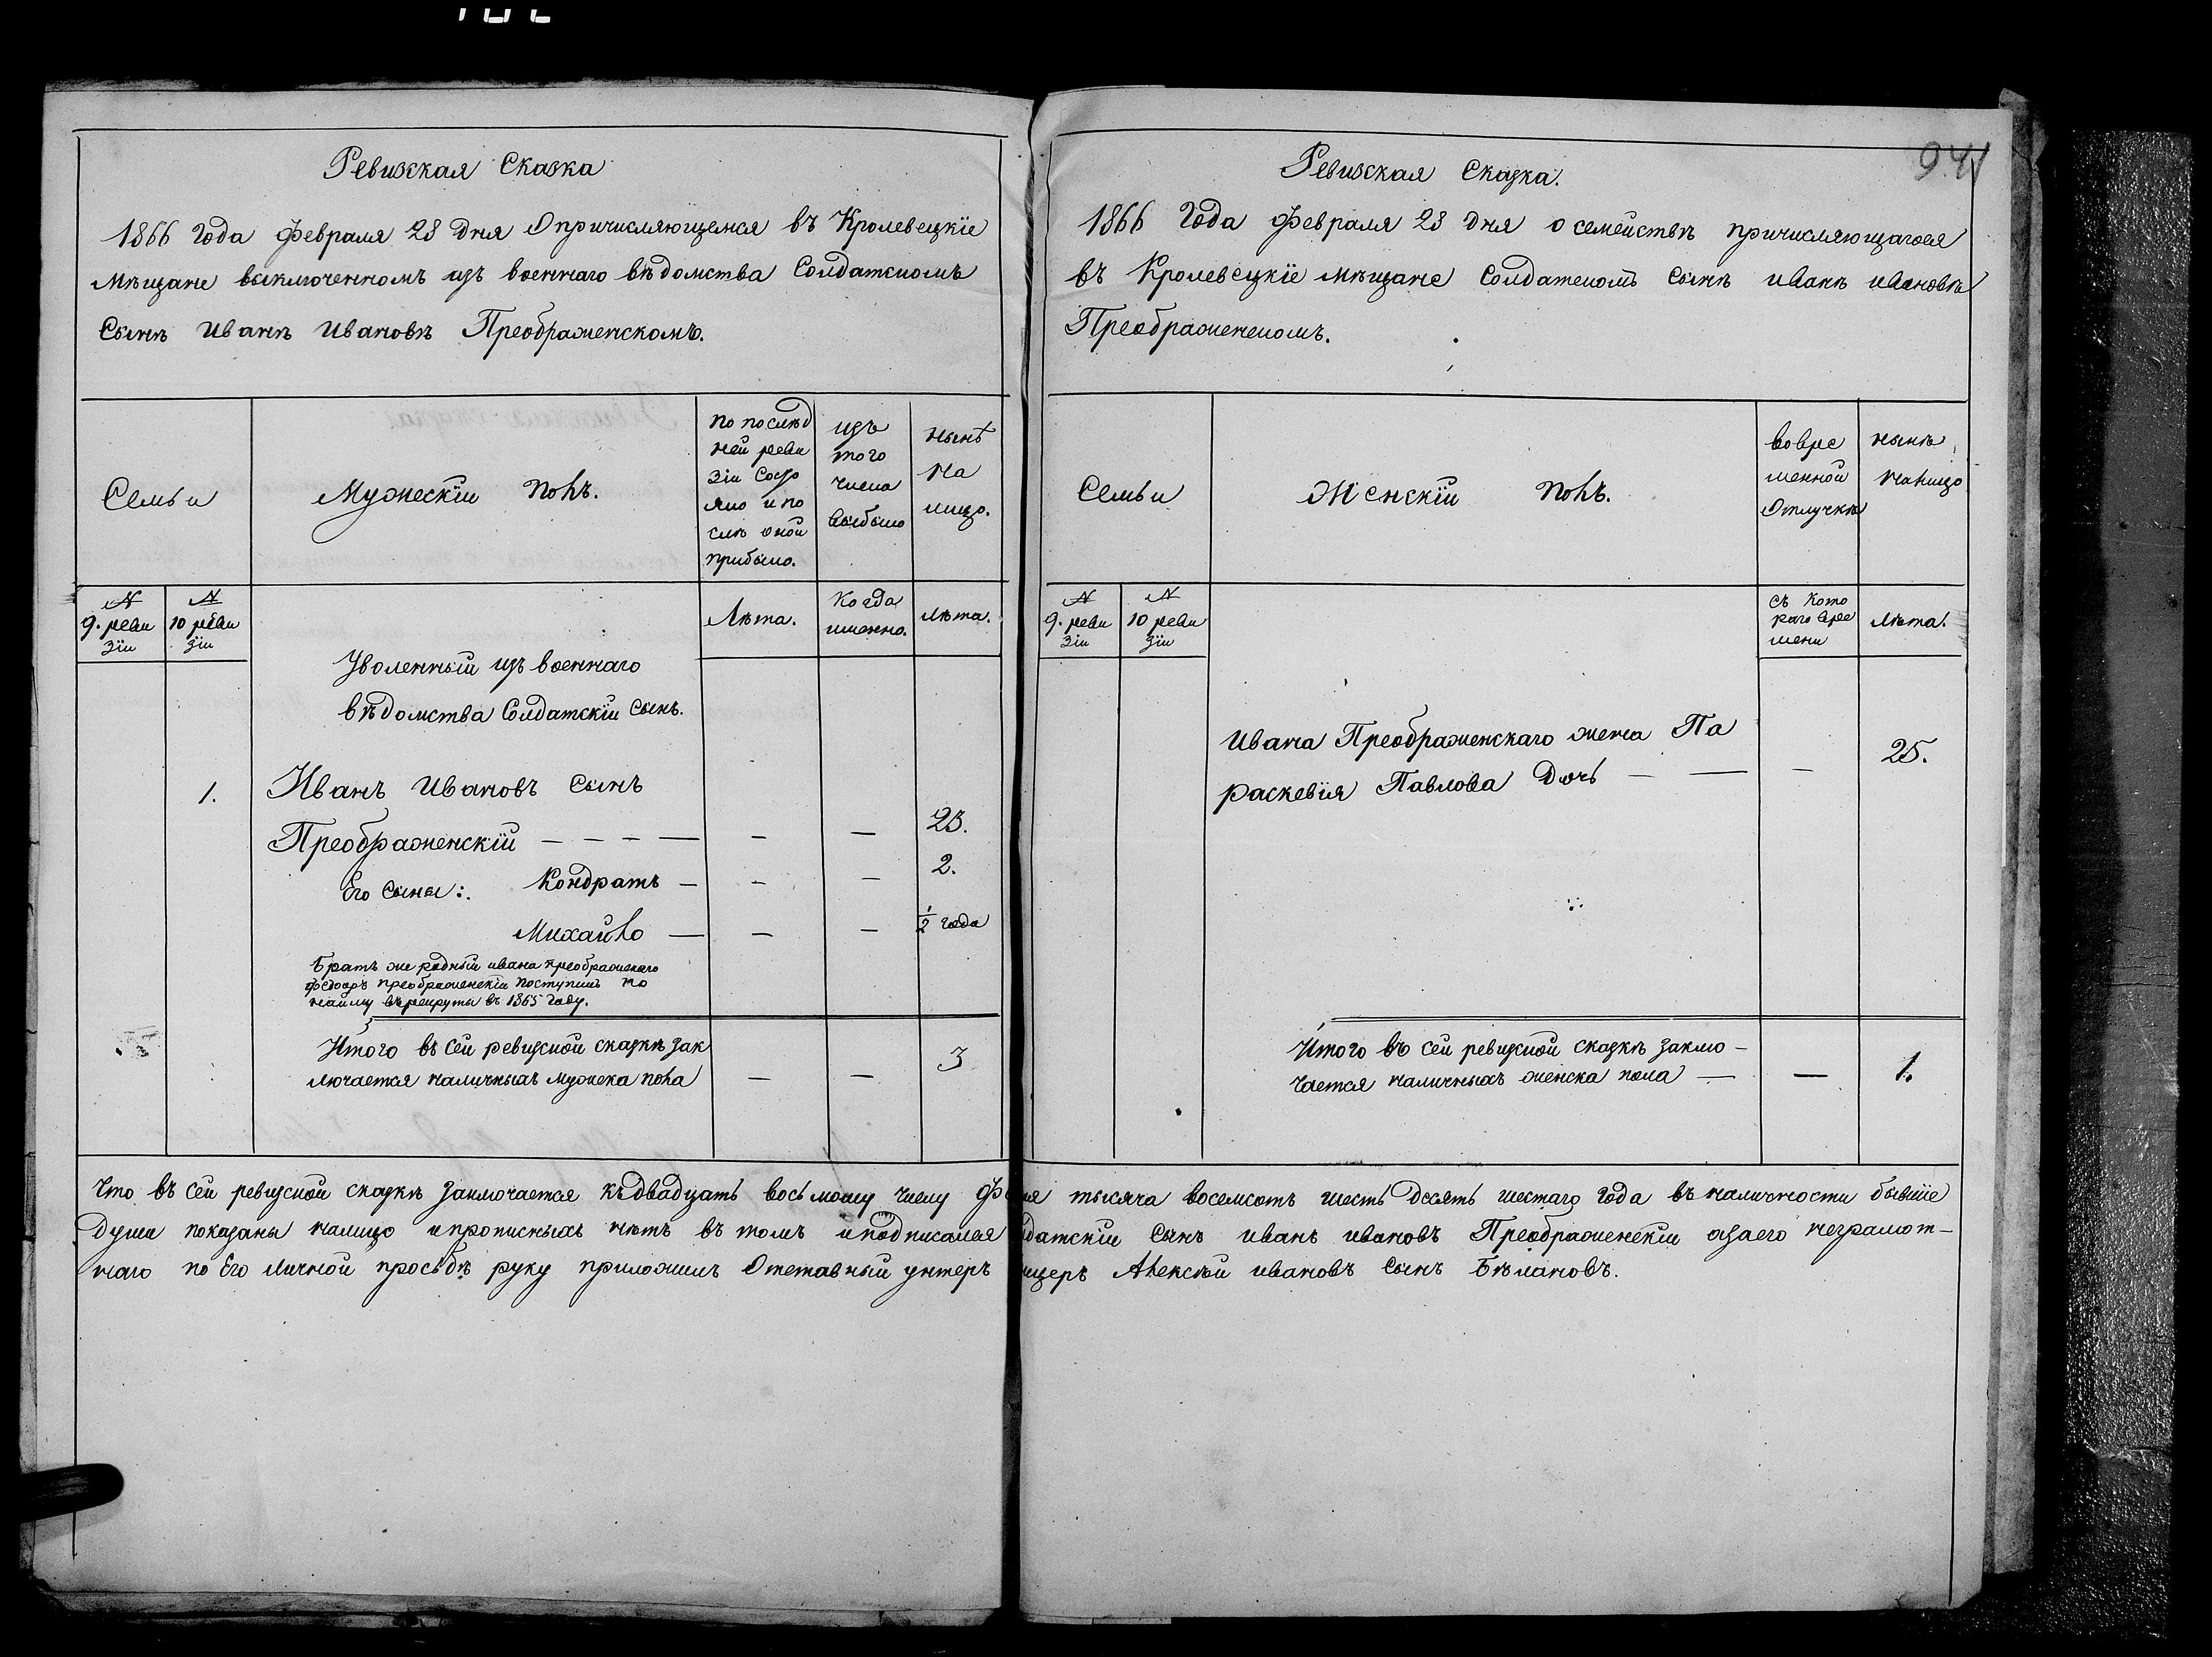 Ревизская Сказка
1866 Года Февраля 28 дня О причисляющемся въ Кролевецкіе
Мѣщане выключенномъ изъ военнаго вѣдомства Солдатскомъ
Сынѣ Иванѣ Ивановѣ Преображенскомъ.
Семьи
Мужескій полъ.
По послѣд
ней реви
зіи Состо
яло и по
слѣ оной
прибыло.
изъ
того
числа
выбыло
нынѣ
на
лицо.
№
9. реви
зіи
№
10 реви
зіи
Лѣта.
Когда
именно.
лѣта.
Уволенный изъ военнаго
вѣдомства Солдатскій Сынъ.
1. Иванъ Ивановъ Сынъ
Преображенскій — — — — — — 25.
Его Сыны:. Кондратъ — — — 2.
Михайло — — — ½ года
Братъ же родный ивана преображенскаго
федоръ преображенскій поступилъ по
найму въ рекруты въ 1865 году.
Итого въ Сей ревизской сказкѣ зак
лючается наличныхъ мужска пола — — 3
Ревизская Сказка.
941
1866 Года Февраля 28 дня о семействѣ причисляющагося
въ Кролевецкіе мѣщане Солдатскомъ Сынѣ иванѣ ивановѣ
Преображенскомъ.
Семьи
Женскій полъ.
во вре
менной
Отлучкѣ
нынѣ
налицо
№
9. реви
зіи
№
10 реви
зіи
съ кото
раго вре
мени
лѣта.
Ивана Преображенскаго жена Па
раскевія Павлова Дочь — — — 25.
Итого въ сей ревизской сказкѣ заклю—
чается наличныхъ женска пола — — 1.
Что въ Сей ревизской сказкѣ заключается къ двадцать восьмому числу тысяча восемсотъ шесть десять шестаго Года въ наличности бывшіе
Души показаны налицо и прописныхъ нѣтъ въ томъ и подписался датскій Сынъ иванъ ивановъ Преображенскій а за его неграмот—
наго по Его личной просьбѣ руку приложилъ Отставный унтеръ ицеръ Алексѣй ивановъ Сынъ Бѣлановъ.